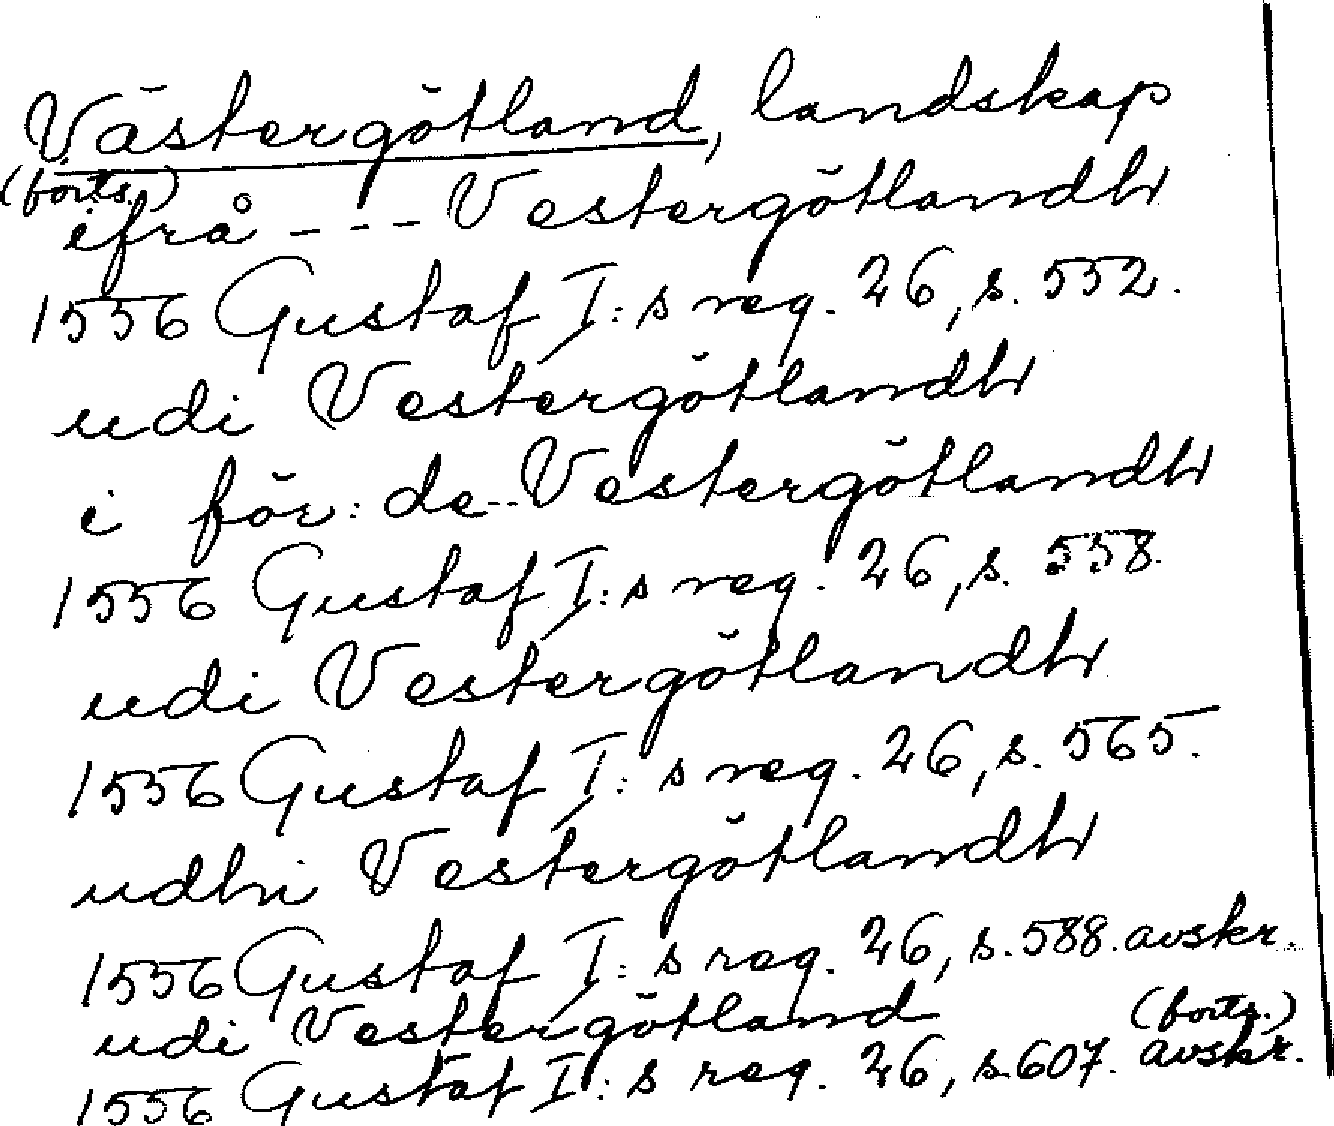 Västergötland, landskap
(forts.)
ifrå --- Vestergötlandh
1556 Gustaf I:s reg. 26, s. 552.
udi Vestergötlandh
i för: de -- Vestergötlandh
1556 Gustaf I:s reg. 26, s. 558.
udi Vestergötlandh
1556 Gustaf I:s reg. 26, s. 565.
udhi Vestergötlandh
1556 Gustaf I:s reg. 26, s. 588. avskr.
udi Vestergötland (forts.)
1556 Gustaf I:s reg. 26, s. 607. avskr.